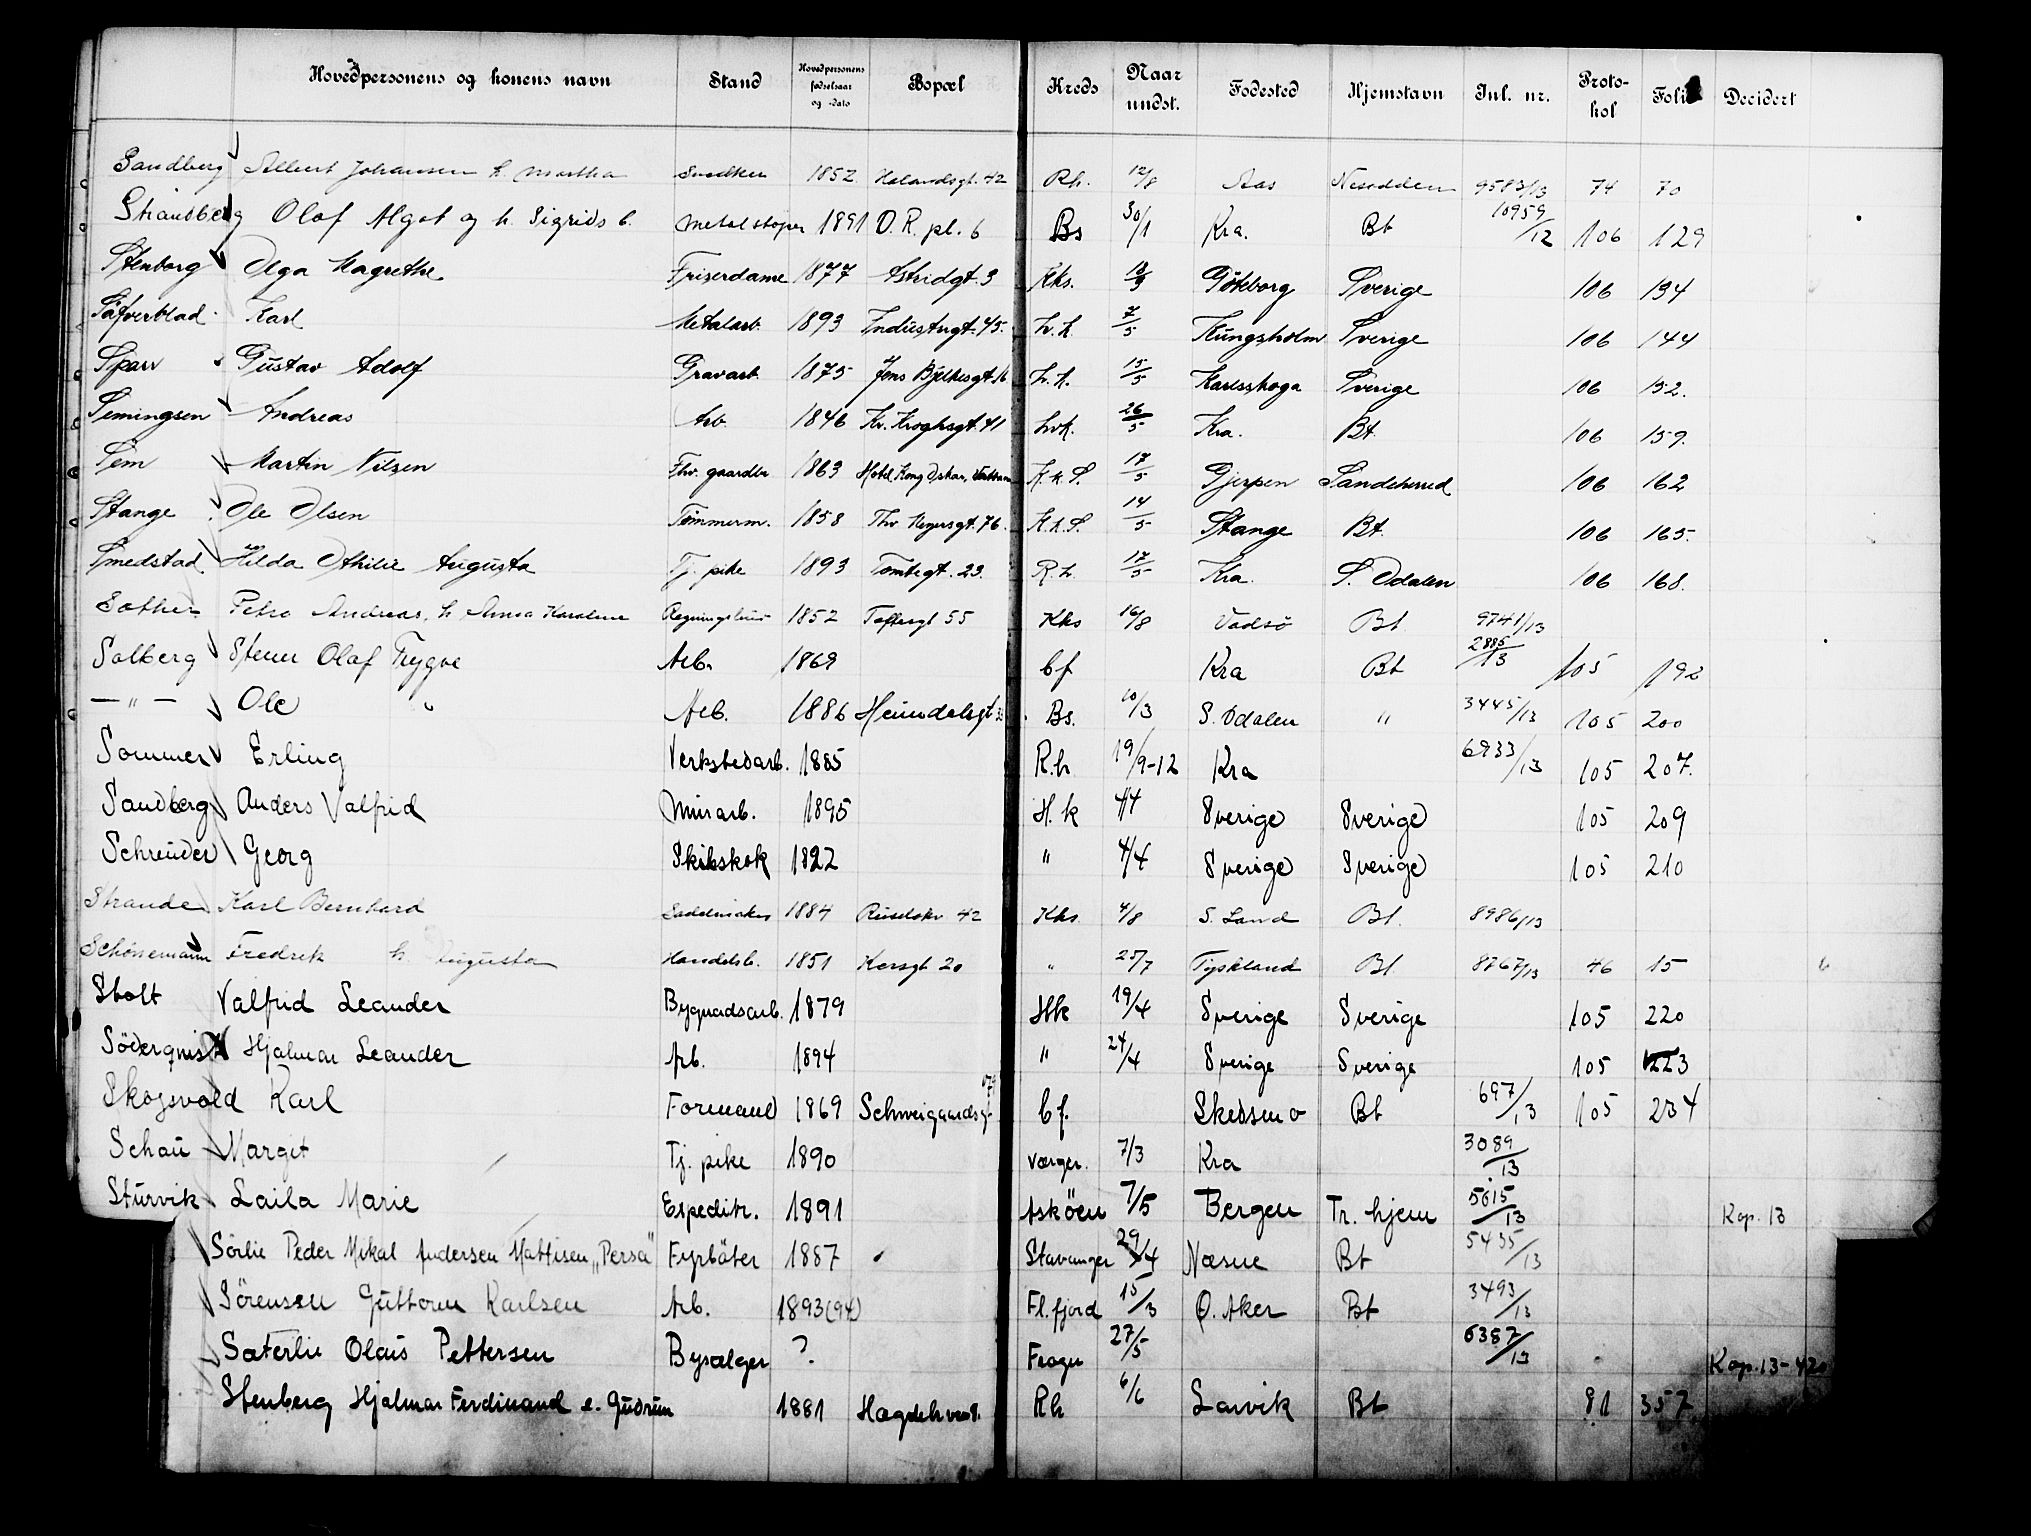 Hovedpersonens og konens navn Stand Hovedpersonens fødselsaar og -dato Bopæl Kreds Naar undst. Fødested Hjemstavn Inl. nr. Protokol Folio Decidert
Sandberg Albert Johansen h. Martha Snedker 1852 Holandsgt. 42 Rh. 12/8 Aas Nesodden 9583/13 74 70
Strandberg Olof Algot og h. Sigrids b. Metalstøper 1891 O. R. pl. 6 Bs 30/1 Kra. Bt 10959/12 106 129
Stenborg Olga Magrethe Friserdame 1877 Astridgt. 3 Kks. Göteborg Sverige 106 134
Säfverblad Karl Metalarb. 1893 Industrigt. 45 h.k. 7/5 Kungsholm Sverige 106 144
Sparr Gustav Adolf Gravarb. 1875 Jens Bjelkesgt. 16 h.k. 15/5 Karlskoga Sverige 106 152.
Semingsen Andreas Arb. 1846 Kr. Kroghsgt. 41 hvk. 26/5 Kra. Bt. 106 159.
Sem Martin Nilsen Fhv. gaardbr 1863 Hotel Kong Oskar, K.k.S. 17/5 Gjerpen Sandeherred 106 162
Stange Ole Olsen Tømmerm. 1858 Thv Meyersgt. 76. K.k.S. 14/5 Stange Bt. 106 165.
Smedstad Hilda Othilie Augusta Tj. pike 1893 Tomtegt. 23. R.h. 17/5 Kra. S. Odalen 106 168.
Petro Andreas, h. Anna Karoline 1852 Toftesgt 55 Kks 16/8 Vadsö Bt 9741/13
Solberg Stener Olaf Trygve Arb. 1869 bf Kra Bt 2885/13 105 192
— " — Ole " Arb. 1886 Heimdalsgt Bs. 10/3 S. Odalen " 3445/13 105 200
Sommer Erling Verkstedarb. 1885 R.h 19/9-12 Kra 6933/13 105 207.
Sandberg Anders Valfrid Murarb. 1895 H.k 4/4 Sverige Sverige 105 209
Schreuder Georg Skibskok 1822 " 4/4 Sverige Sverige 105 210
Strande Karl Bernhard Sadelmaker 1884 Ruseløkv 42 Kks 4/8 S. Land Bt. 8986/13
Schönemann Fredrik h. Augusta Handelsb. 1851 Korsgt 20 " 25/7 Tyskland Bt 8767/13 46 15
Stolt Valfrid Leander Bygnadsarb. 1879 Hk 19/4 Sverige Sverige 105 220
Söderqvist Hjalmar Leander Arb. 1894 " 24/4 Sverige Sverige 105 223
Skogsvold Karl Formand 1869 Schweigaardsg. bf. Skedsmo Bt 697/13 105 234
Schau Margit Tj. pike 1890 Værger. 7/3 Kra 3089/13
Sturvik Laila Marie Espeditr. 1891 Asköen 7/5 Bergen Tr. hjem 5615/13 Kop. 13
Sörlie Peder Mikal Andersen Mattisen „Perså" Fyrböter 1887 Stavanger 29/4 Næsne Bt 5435/13
Sörensen Guttorm Karlsen Arb. 1893(94) Fl.fjord 15/3 Ö. Aker Bt 3493/13
Sæterlie Olaus Pettersen Bysælger ? Frogn 27/5 6387/13 Kop. 13-420
Stenberg Hjalmar Ferdinand e. Gudrun 1881 Hagdehvs Rh 6/6 Larvik Bt 91 357